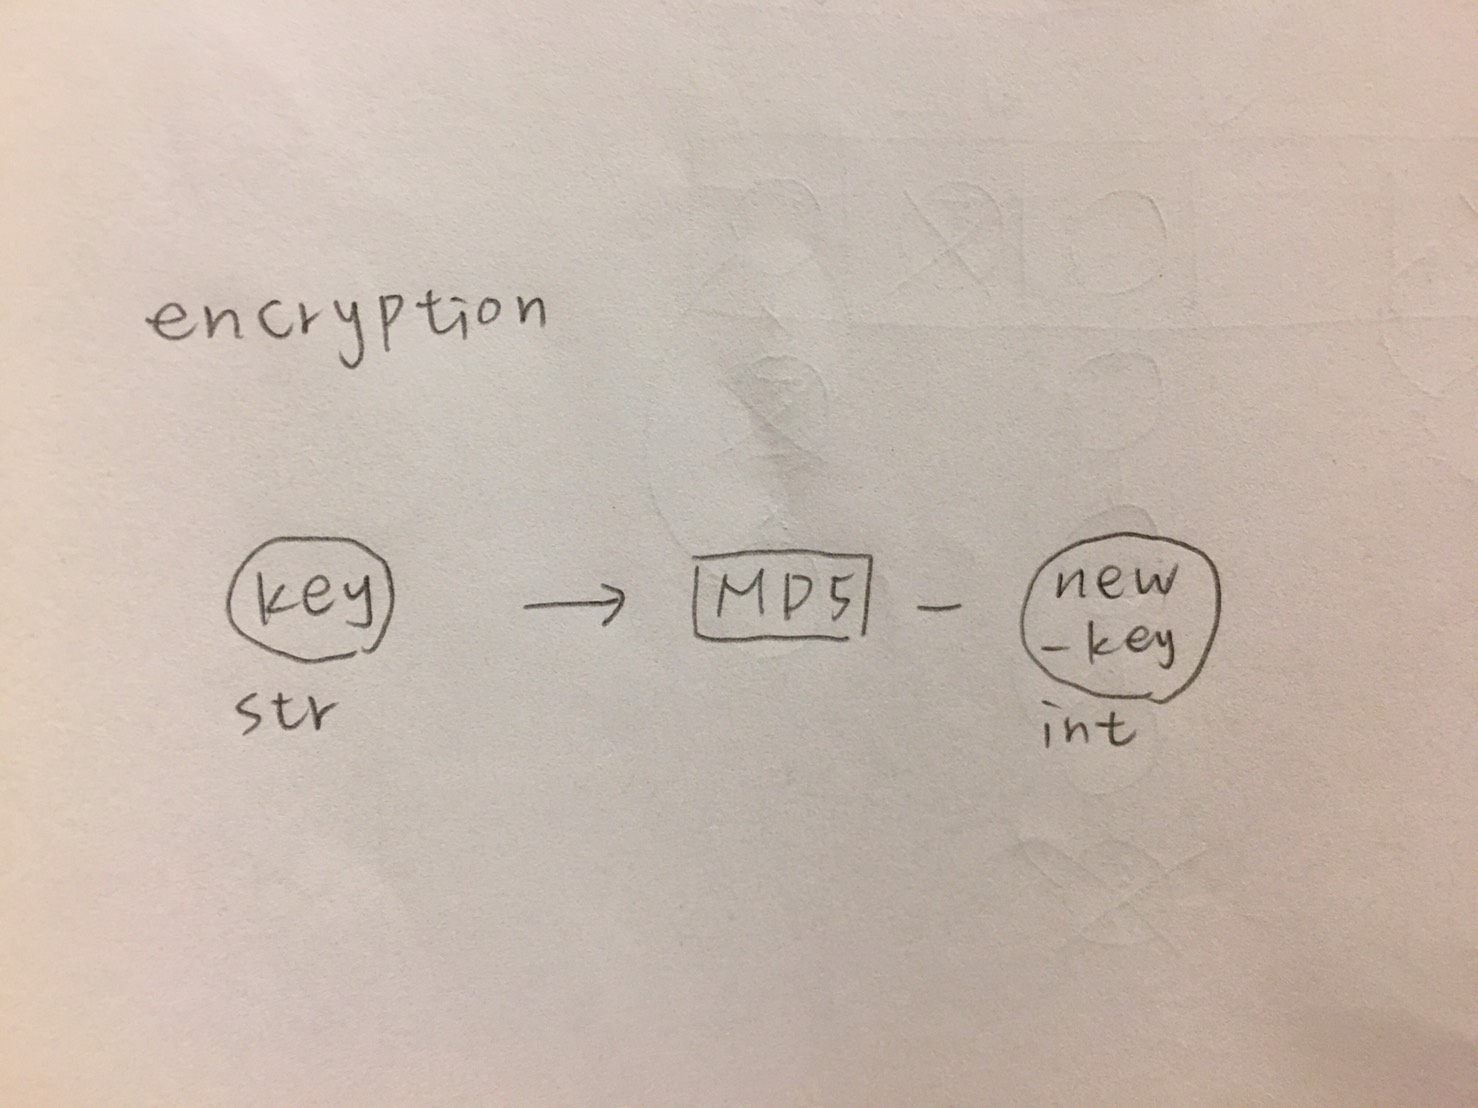 encryption
key → MD5 - new
-key
str
int